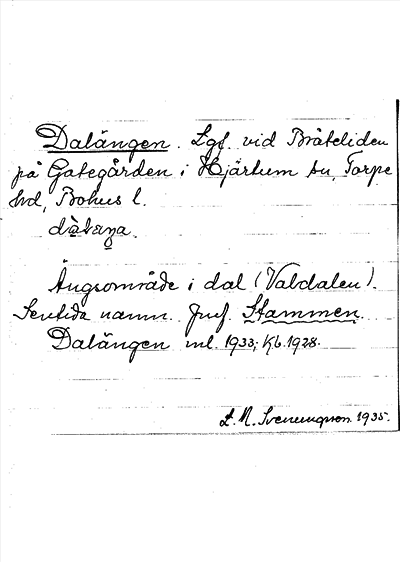 Dalängen. Lgf. vid Bråteliden
på Gategården i Hjärtum sn, Torpe
hd, Bohus l.
Ängsområde i dal (Valdalen).
Sentida namn. Jmf. Stammen.
Dalängen ml. 1933; Kb. 1928.
1935.